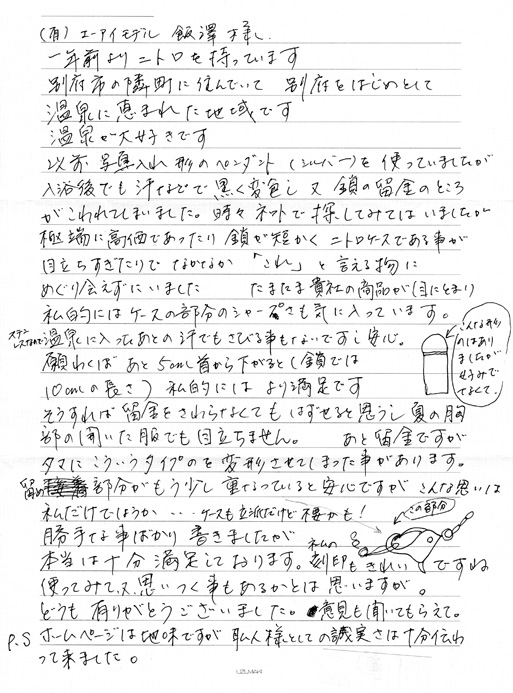 (有)エーアイモデル 飯澤 様
一年前よりニトロを持っています
別府市の隣町に住んでいて 別府をはじめとして
温泉に恵まれた地域です
温泉が大好きです
以前 写真入れ形のペンダント(シルバー)を使っていましたが
入浴後でも汗などで黒く変色し 又 鎖の留金のところ
がこわれてしまいました。時々ネットで探してみてはいましたが
極端に高価であったり 鎖が短かく ニトロケースである事が
目立ちすぎたりで なかなか 「これ」と言える物に
めぐり会えずにいました たまたま貴社の商品が目にとまり
私的にはケースの部分のシャープさも気に入っています。
ステンレスなので 温泉に入ったあとの汗でもさびる事もないですし安心。
こんな形のはありましたが 好みでなくて。
願わくば あと5cm首から下がると(鎖では
10cmの長さ) 私的には より満足です
そうすれば 留金をさわらなくてもはずせると思うし 夏の胸
部の開いた服でも目立ちません。 あと留金ですが
タマにこういうタイプのを変形させてしまった事があります。
留め部分がもう少し重なっていると安心ですが こんな思いは
私だけでほうか … ケースも立派だけど 不要かも!
この部分
勝手な事ばかり書きましたが
本当は十分満足しております。刻印もきれいですね
使ってみて、又、思いつく事もあるかとは思いますが。
どうも有りがとうございました。意見も聞いてもらえて。
P.S ホームページは地味ですが 職人様としての誠実さは十分伝わ
って来ました。
UZUMAKI